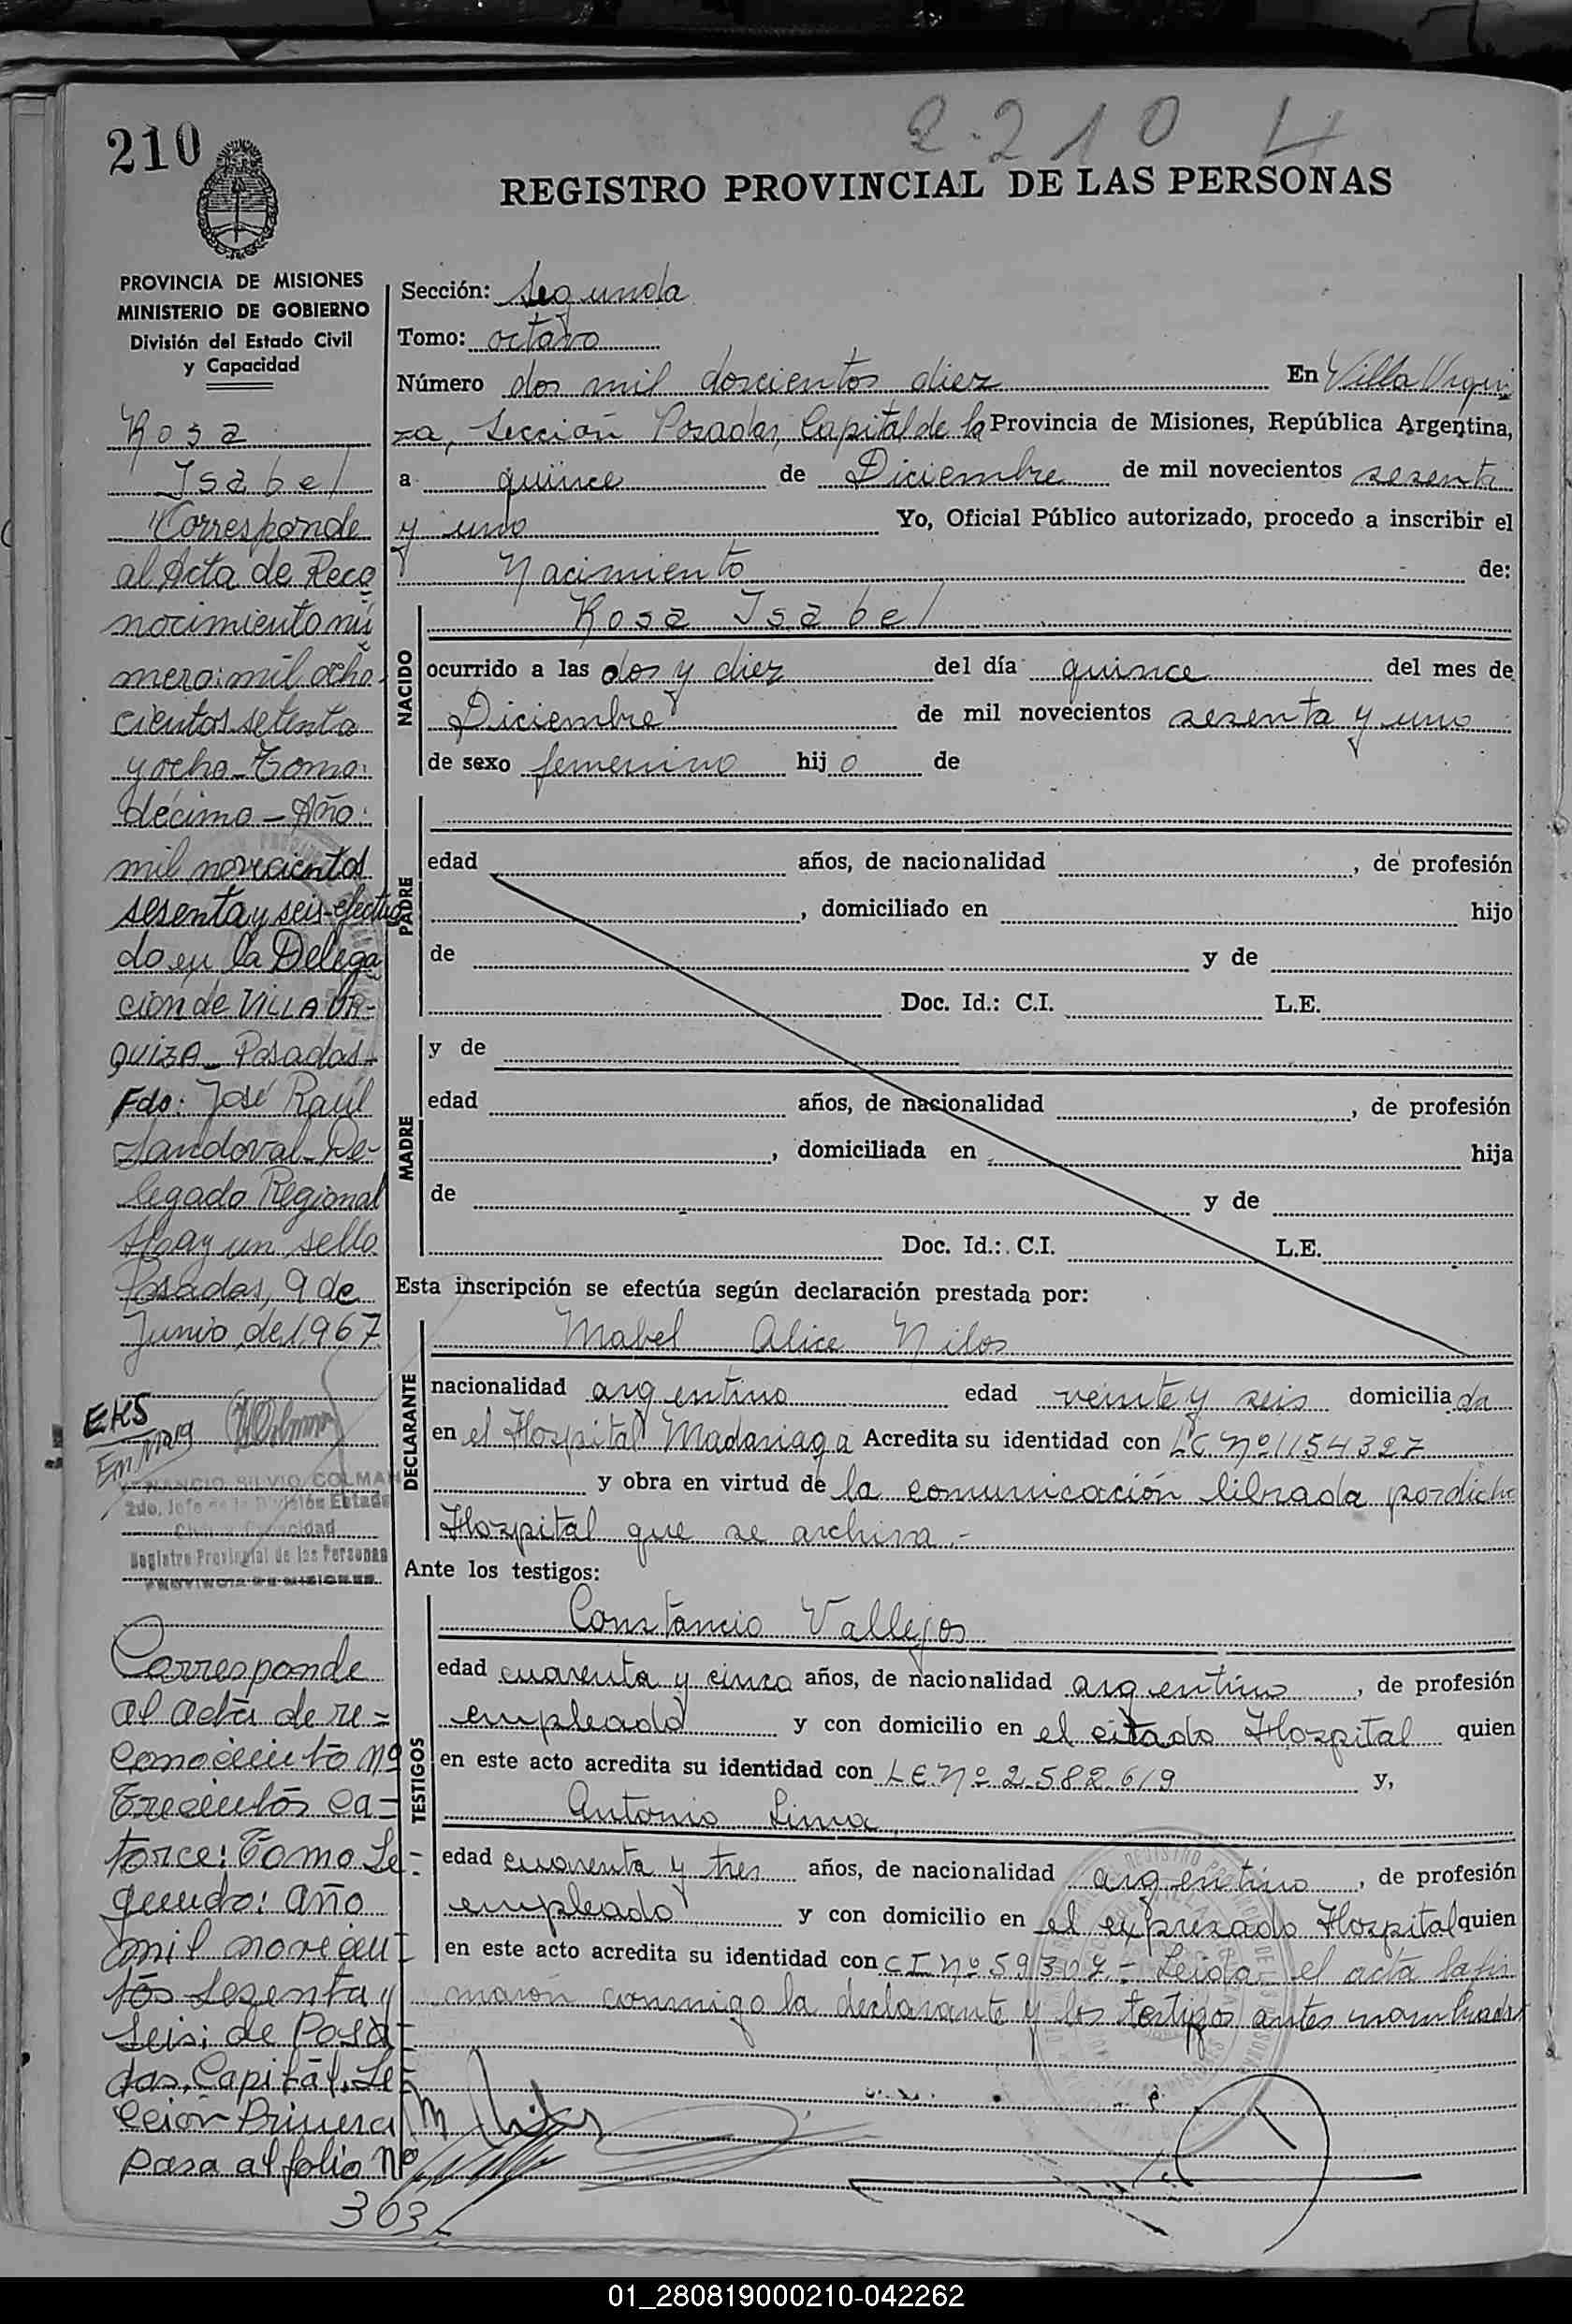 210
2-210
REGISTRO PROVINCIAL DE LAS PERSONAS
PROVINCIA DE MISIONES
MINISTERIO DE GOBIERNO
División del Estado Civil
y Capacidad
Rosa
Isabel
"Corresponde
al Acta de Reco
nocimiento nú
mero: mil ocho
cientos setenta
y ocho - Tomo:
décimo - Año:
mil novecientos
sesenta y seis - efectua
do en la Delega
ción de VILLA UR-
QUIZA - Posadas -
Fdo: José Raúl
Sandoval - De-
legado Regional
Hay un sello
Posadas, 9 de
Junio de 1967
EKS
VENANCIO SILVIO COLMAN
2do. Jefe de la División Estado
Civil y Capacidad
Registro Provincial de las Personas
PROVINCIA DE MISIONES
Corresponde
al acta de re=
conocimiento nº
Trecientos ca=
torce: Tomo Se=
gundo: año
mil novecien-
tos sesenta y
seis: de Posa-
das, Capital, Se
cción Primera
Pasa al folio Nº
303
Sección: Segunda
Tomo: octavo
Número dos mil doscientos diez En Villa Urqui
za, Sección Posadas, Capital de la Provincia de Misiones, República Argentina,
a quince de Diciembre de mil novecientos sesenta
y uno Yo, Oficial Público autorizado, procedo a inscribir el
Nacimiento de:
NACIDO
Rosa Isabel
ocurrido a las dos y diez del día quince del mes de
Diciembre de mil novecientos sesenta y uno
de sexo femenino hij o de
PADRE
edad años, de nacionalidad , de profesión
, domiciliado en hijo
de y de
Doc. Id.: C.I. L.E.
MADRE
y de
edad años, de nacionalidad , de profesión
, domiciliada en hija
de y de
Doc. Id.: C.I. L.E.
Esta inscripción se efectúa según declaración prestada por:
DECLARANTE
Mabel Alice Nilos
nacionalidad argentina edad veinte y seis domicilia da
en el Hospital Madariaga Acredita su identidad con LC Nº 1154327
y obra en virtud de la comunicación librada por dicho
Hospital que se archiva.-
Ante los testigos:
TESTIGOS
Constancio Vallejos
edad cuarenta y cinco años, de nacionalidad argentino , de profesión
empleado y con domicilio en el citado Hospital quien
en este acto acredita su identidad con L.E. Nº 2.582.619 y,
Antonio Lima
edad cuarenta y tres años, de nacionalidad argentino , de profesión
empleado y con domicilio en el expresado Hospital quien
en este acto acredita su identidad con C I Nº 59307 - Leida el acta la fir
maron conmigo la declarante y los testigos antes nombrados
01_280819000210-042262